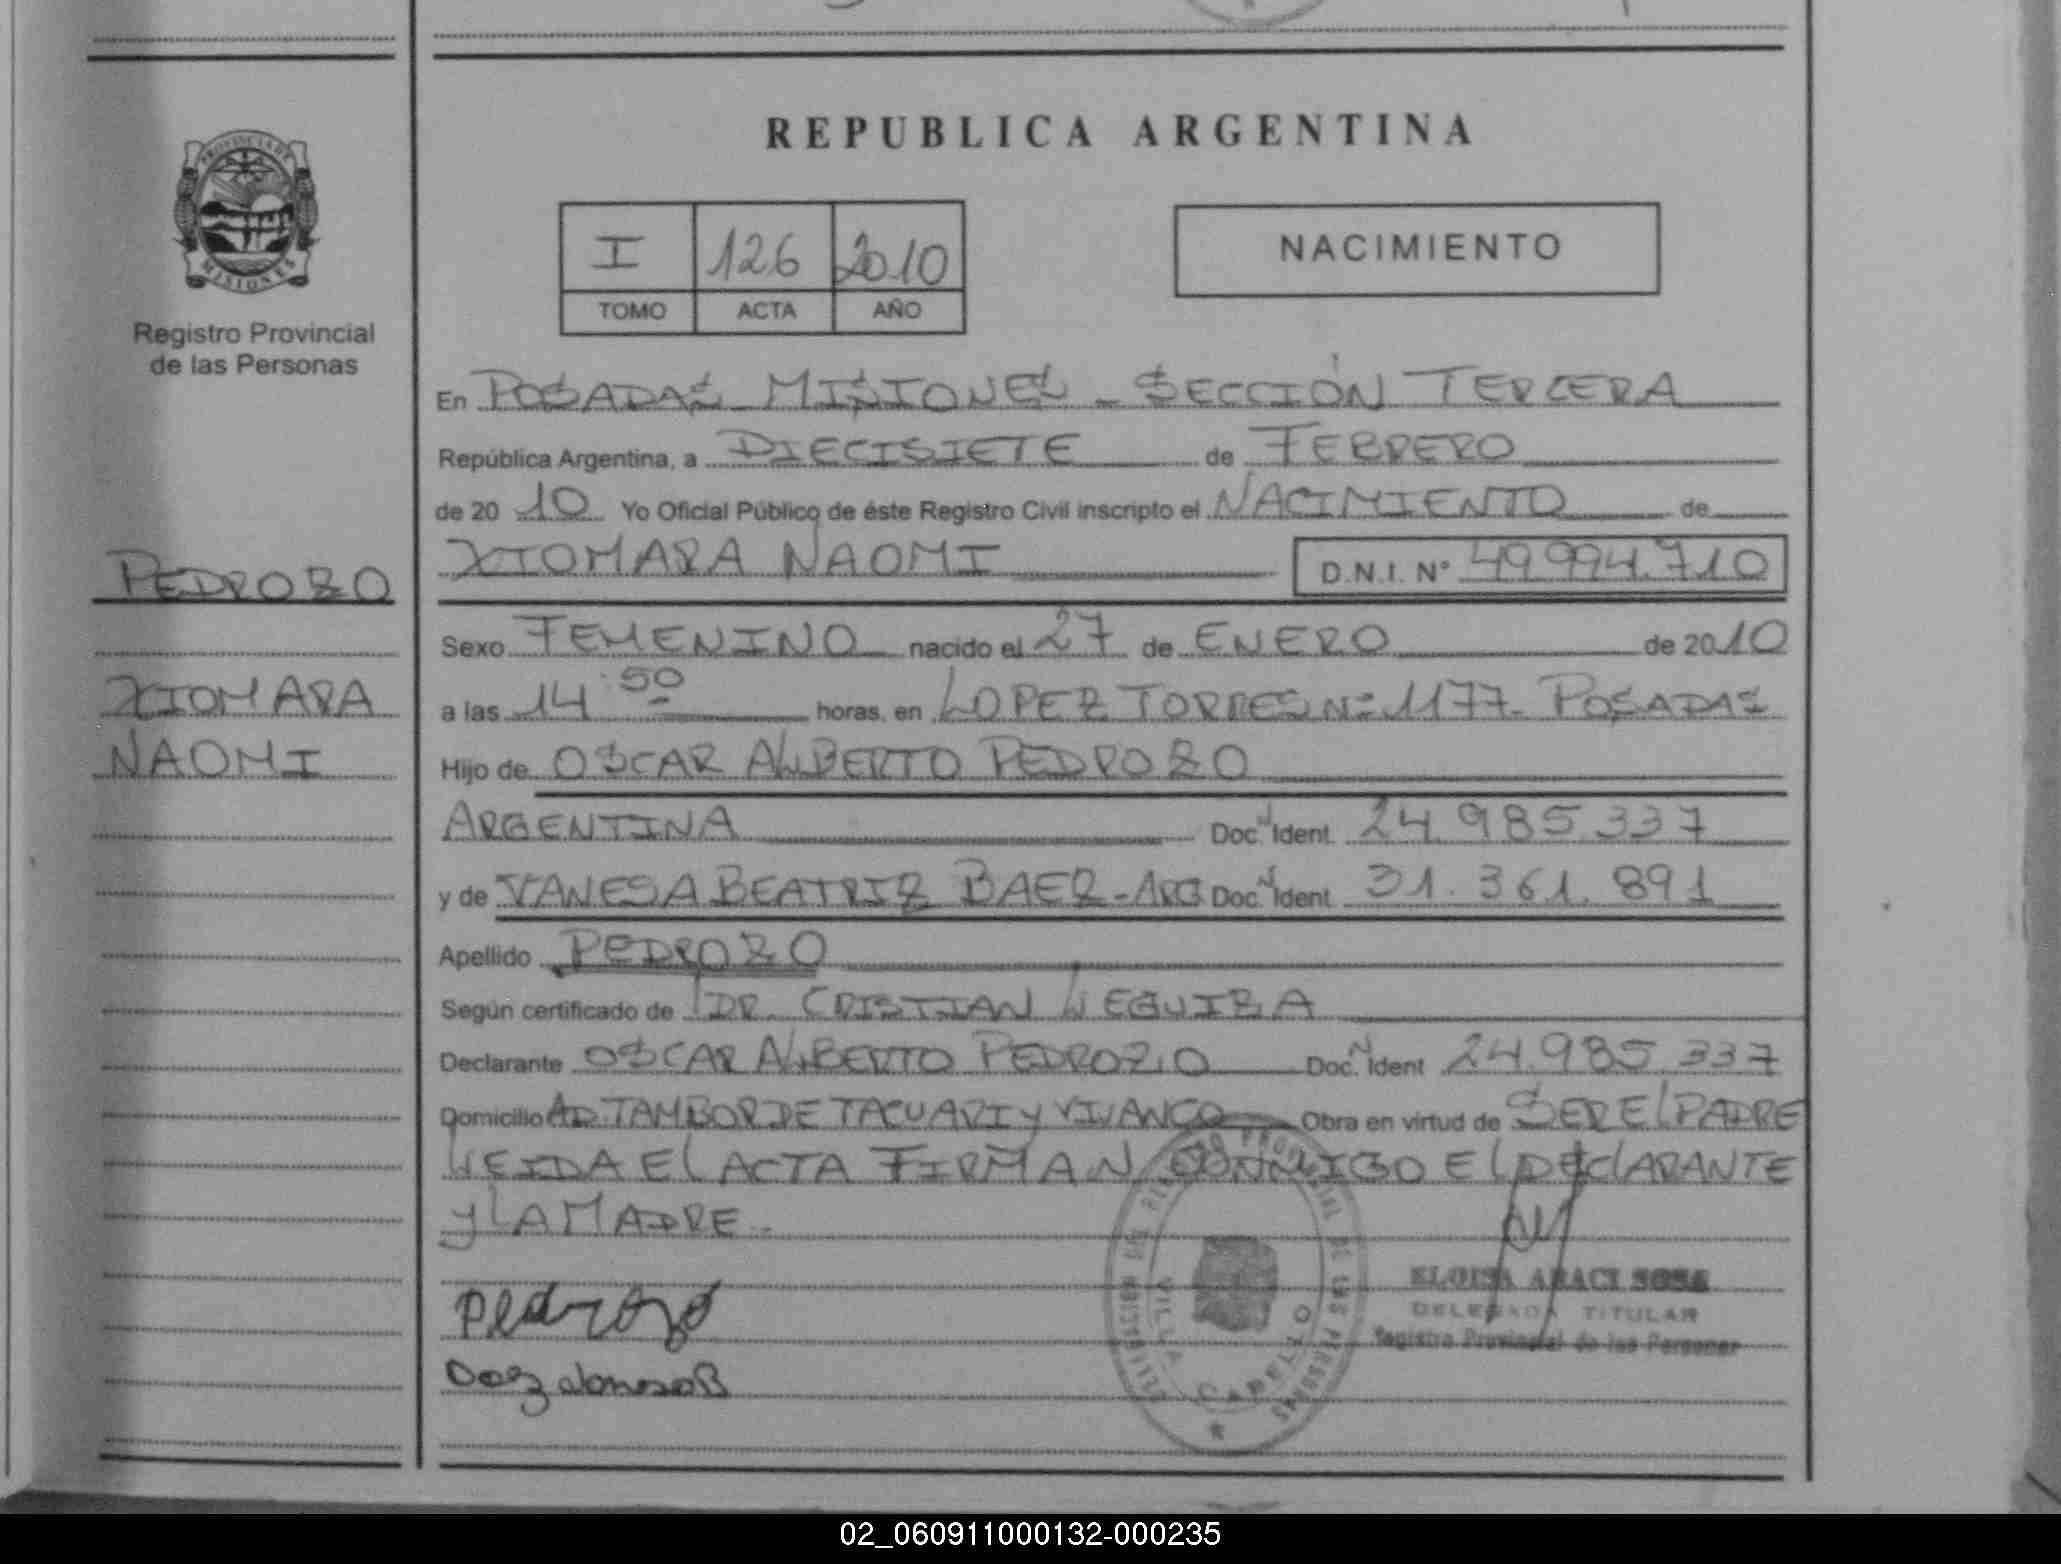 PROVINCIA DE
MISIONES
Registro Provincial
de las Personas
PEDROZO
XIOMARA
NAOMI
REPUBLICA ARGENTINA
I 126 2010
TOMO ACTA AÑO
NACIMIENTO
En POSADAS MISIONES - SECCIÓN TERCERA
República Argentina, a DIECISIETE de FEBRERO
de 2010 Yo Oficial Público de éste Registro Civil inscripto el NACIMIENTO de
XIOMARA NAOMI D.N.I. Nº 49.994.710
Sexo FEMENINO nacido el 27 de ENERO de 2010
a las 14:50 horas, en LOPEZ TORRES Nº 1177 - POSADAS
Hijo de OSCAR ALBERTO PEDROZO
ARGENTINA Doc. Ident. 24.985.337
y de VANESA BEATRIZ BAEZ - ARG Doc. Ident. 31.361.891
Apellido PEDROZO
Según certificado de DR. CRISTIAN
Declarante OSCAR ALBERTO PEDROZO Doc. Ident 24.985.337
Domicilio AD. TAMBOR DE TACUARI y VIVANCO Obra en virtud de SER EL PADRE
LEIDA EL ACTA FIRMAN CONMIGO EL DECLARANTE
y LA MADRE.
Pedrozo
ELOISA ARACI SOSA
DELEGADA TITULAR
Registro Provincial de las Personas
VILLA CABELLO
02_060911000132-000235